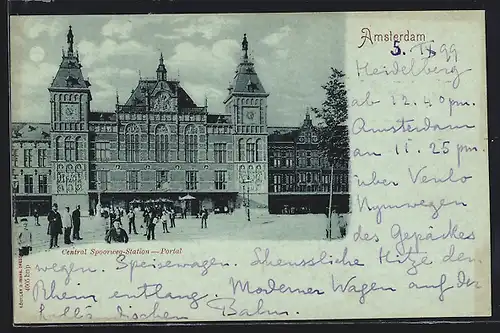 Amsterdam
5. IX 99
Heidelberg
ab 12.40 pm.
Amsterdam
an 11.25 pm.
über Venlo
Nymwegen
des Gepäckes
wegen. Speisewagen. Scheussliche Hitze den
Rhein entlang. Moderner Wagen auf der
holländischen Bahn.
Central Spoorweg-Station — Portal